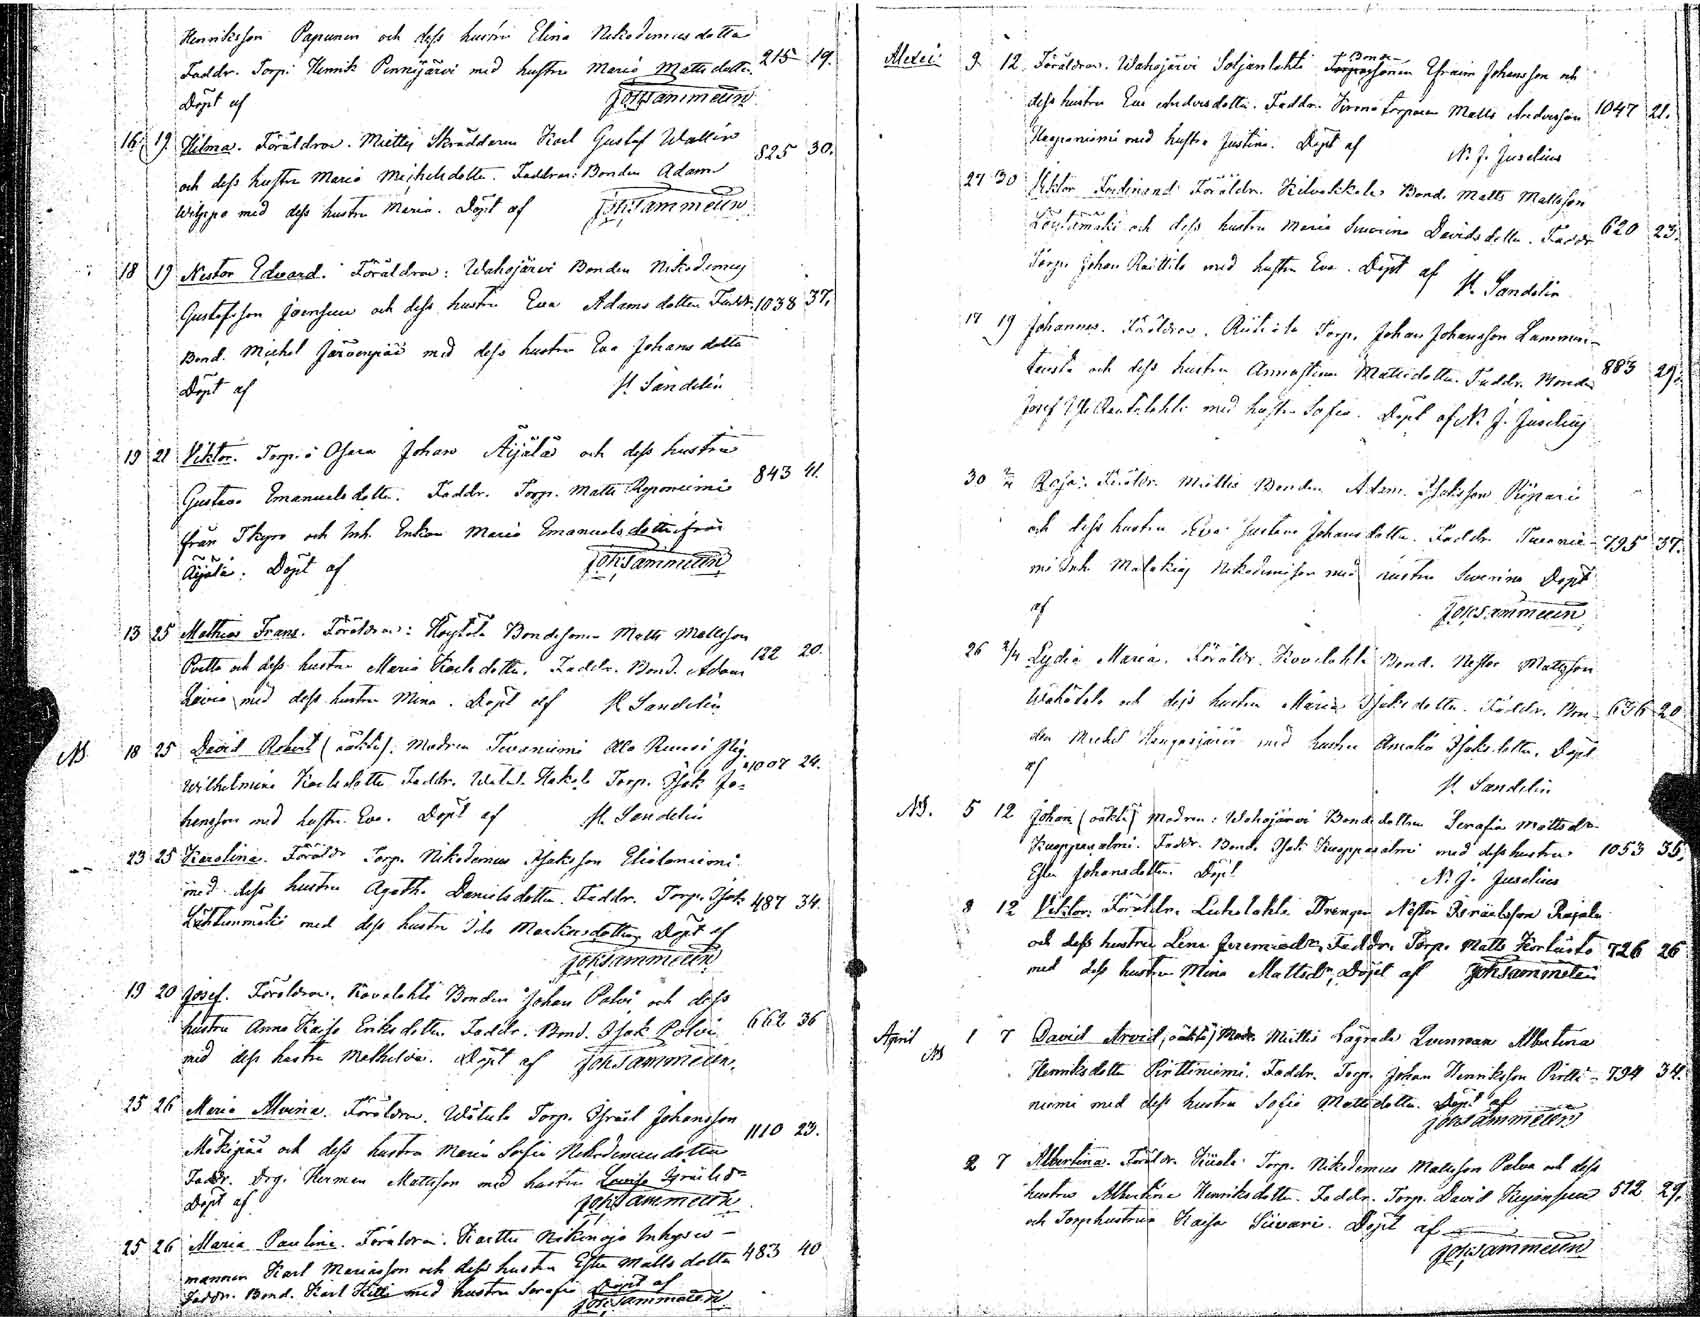 Henriksson Papunen och dess hustru Elina Nikodemusdotter
Faddr. Torp: Henrik Pinnijärvi med hustru Maria Mattsdotter. 215 19.
Döpt af Joh Sammelin
16 19 Hilma. Föräldrar. Miettis Skräddaren Karl Gustaf Wallin
och dess hustru Maria Michelsdotter. Faddrar: Bonden Adam 825 30.
med dess hustru Maria. Döpt af Joh Sammelin
18 19 Nestor Edvard. Föräldrar: Wahojärvi Bonden Nikodemus
Gustafsson Joensuu och dess hustru Eva Adamsdotter Faddr. 1038 37.
Bond. Michel Järvenpää med dess hustru Eva Johansdotter
Döpt af K. Sandelin
19 21 Viktor. Torp. Osara Johan Äijälä och dess hustru
Gustava Emanuelsdotter. Faddr. Torp. Matts Reponiemi 843 41.
från Ikyro och Inh. Enkan Maria Emanuelsdotter från
Äijälä. Döpt af Joh Sammelin
13 25 Mathias Frans. Föräldrar: Röyhiö Bondesonen Matts Mattsson
och dess hustru Maria Karlsdotter. Faddr. Bond. Adam 122 20.
med dess hustru Mina. Döpt af K. Sandelin
NB 18 25 David Robert (oäkta). Modren Tevaniemi Ruusi Pig.
Wilhelmina Karlsdotter Faddr. Hakala Torp. Isak Jo= 1007 24.
hansson med hustru Eva. Döpt af K. Sandelin
23 25 Karolina. Föräldr Torp. Nikodemus Isaksson
med dess hustru Agatha Danielsdotter. Faddr. Torp. Isak 487 34.
med dess hustru Ida Martinsdotter, Döpt af
Joh Sammelin
19 20 Josef. Föräldrar. Kovelahti Bonden Johan Palvi och dess
hustru Anna Kaisa Eriksdotter Faddr. Bond. Isak Polvi 662 36
med dess hustru Mathilda. Döpt af Joh Sammelin.
25 26 Maria Alvina. Föräldrar. Wätula Torp. Israel Johansson
Mäkipää och dess hustru Maria Sofia Nikodemusdotter 1110 23.
Faddr. Drg. Herman Mattsson med hustru Lovisa Israelsd=
Döpt af Joh Sammelin
25 26 Maria Paulina. Föräldrar. Karttu Nikinoja Inhyses-
mannen Karl Mariasson och dess hustru Ester Mattsdotter 483 40
Faddr. Bond. Karl Kille med hustru Serafia Döpt af
Joh Sammelin
Alexei 9 12 Föräldrar. Wahojärvi Soljanlahti Bonde- Efraim Johansson och
dess hustru Eva Andersdotter. Faddr. torparen Matts Andersson 1047 21.
Haapaniemi med hustru Justina. Döpt af N. J. Juselius
27 30 Viktor Ferdinand Föräldr. Kilvakkala Bond. Matts Mattsson
Löytömäki och dess hustru Maria Severina Davidsdotter. Faddr 620 23.
Torp. Johan Raittila med hustru Eva. Döpt af
K. Sandelin
17 19 Johannes. Föräldrar. Torp. Johan Johansson Lammin-
tausta och dess hustru Annastina Mattsdotter. Faddr. Bonden 883 29.
Josef Yli Rautalahti med hustru Sofia. Döpt af N. J. Juselius
30 Föräldr. Miettis Bonden Adam Isaksson
och dess hustru Eva Gustava Johansdotter. Faddr. Tevanie- 795 37.
mi Inh. Malakias Nikodemusson med hustru Severina Döpt
af Joh Sammelin
26 2/4 Lydia Maria. Föräldr. Kovelahti Bond. Nestor Mattsson
och dess hustru Maria Isaksdotter. Faddr. Bon- 636 20
den Michel Kangasjärvi med hustru Amalia Isaksdotter. Döpt
af K. Sandelin
NB. 5 12 Johan (oäkta) Modren: Wahojärvi Bondedottren Serafia Mattsdr.
Kuoppasalmi. Faddr. Bond. Isak Kuoppasalmi med dess hustru 1053 35.
Ester Johansdotter. Döpt N. J. Juselius
8 12 Viktor. Föräldr. Luhalahti Drengen Nestor Israelsson Rajala
och dess hustru Lena Jeremiedr, Faddr. Torp. Matts Korhiisto 726 26
med dess hustru Mina Mattsdr, Döpt af Joh Sammelin
April NB 1 7 David Arvid, (oäkta) Modr. Miettis Lägrade Qvinnan Albertina
Henriksdotter Pirttiniemi. Faddr. Torp. Johan Henriksson Pirtti- 794 34.
niemi med dess hustru Sofia Mattsdotter. Döpt af
Joh Sammelin
2 7 Albertina. Föräldr. Torp. Nikodemus Mattsson Palva och dess
hustru Albertina Henriksdotter. Faddr. Torp. David Kujansuu 512 29.
och Torphustrun Kaisa Siivari. Döpt af
Joh Sammelin